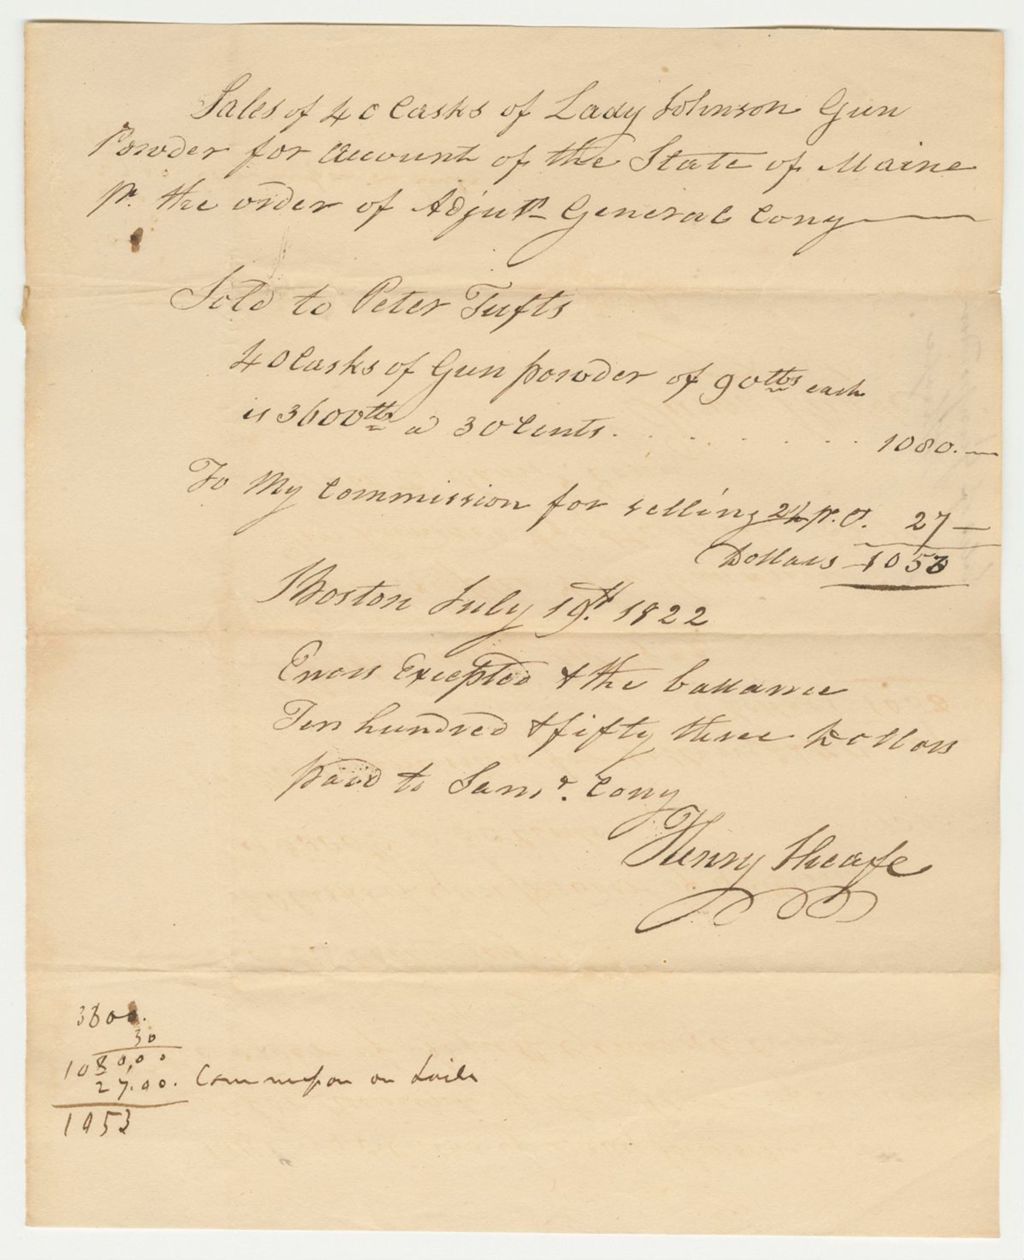 Sales of 40 Casks of Lady Johnson Gun
Powder for account of the State of Maine
pr. the order of Adjut General Cony
Sold to Peter Tufts
40 Casks of Gun powder of 90 lbs each
is 3600 lbs a 30 Cents. . . . . . . . 1080.—
To My Commission for selling 2½ pr. C. 27—
Dollars 1053
Boston July 19th. 1822
Errors Excepted & the ballance
Ten hundred & fifty three Dollars
paid to Saml. Cony
Henry Sheafe
3600.
30
1080,00
27.00. Commission on
1053